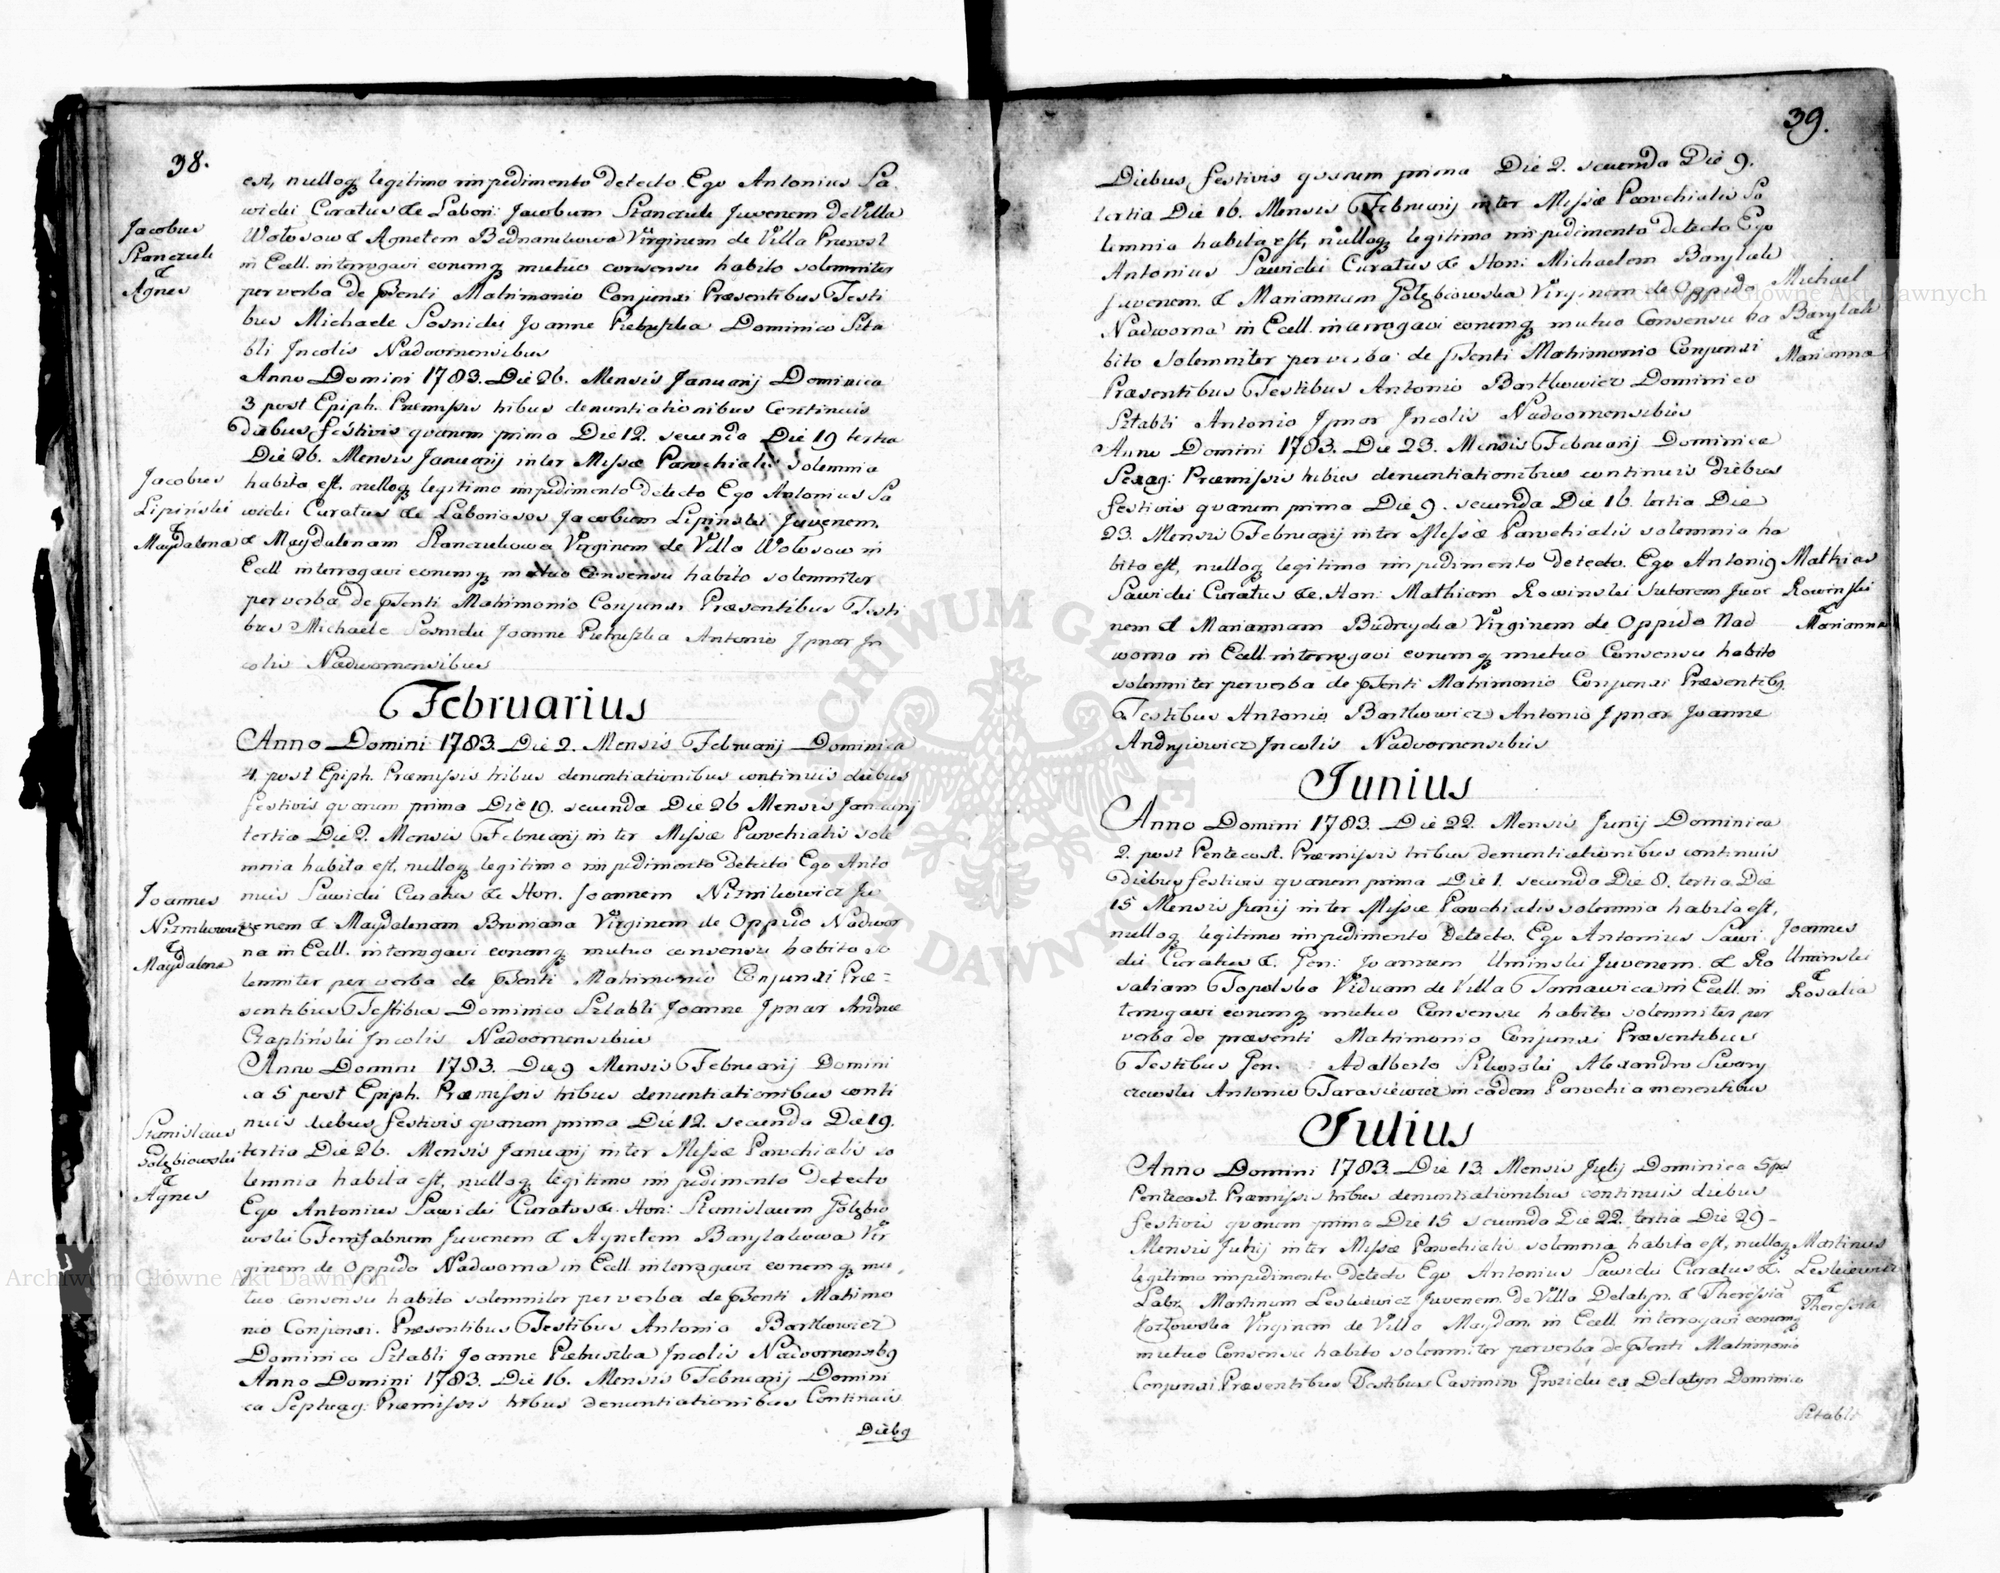 38.
est, nulloq legitimo impedimento detecto Ego Antonius Sa
wicki Curatus &c Labori: Jacobum Stanczuk Juvenem de Villa
Wołosow & Agnetem Bednarukowa Virginem de Villa
in Eccl. interrogavi eorumq mutuo consensu habito solemniter
per verba de psenti Matrimonio Conjunxi Præsentibus Testi
bus Michaele Sosnicki Joanne Pietruszka Dominico Szta
bli Incolis Nadvornensibus
Jacobus
Stanczuk
&
Agnes
Anno Domini 1783. Die 26. Mensis Januarij Dominica
3 post Epiph. Præmissis tribus denuntiationibus Continuis
diebus festivis quarum prima Die 12. secunda Die 19 tertia
Die 26. Mensis Januarij inter Missæ Parochialis solemnia
habita est. nulloq legitimo impedimento detecto Ego Antonius Sa
wicki Curatus &c Laboriosos Jacobum Lipiński Juvenem
& Magdalenam Stanczukowa Virginem de Villa Wołosow in
Eccl interrogavi eorumq mutuo Consensu habito solemniter
per verba de psenti Matrimonio Conjunxi Præsentibus Testi
bus Michaele Sosnicki Joanne Pietruszka Antonio Ipnar In
colis Nadwornensibus
Jacobus
Lipiński
&
Magdalena
Februarius
Anno Domini 1783. Die 2. Mensis Februarij Dominica
4. post Epiph. Præmissis tribus denuntiationibus continuis diebus
festivis quarum prima Die 19. secunda Die 26 Mensis Januarij
tertia Die 2. Mensis Februarij inter Missæ Parochialis sole
mnia habita est, nulloq legitimo impedimento detecto Ego Anto
nius Sawicki Curatus &c Hon. Joannem Nizmikowicz Ju
venem & Magdalenam Virginem de Oppido Nadwor
na in Eccl. interrogavi eorumq mutuo consensu habito so
lemniter per verba de psenti Matrimonio Conjunxi Præ-
sentibus Testibus Dominico Sztabli Joanne Ipnar Andrea
Czapliński Incolis Nadvornensibus
Joannes
Nizmikowicz
&
Magdalena
Anno Domini 1783. Die 9 Mensis Februarij Domini
ca 5 post Epiph. Præmissis tribus denuntiationibus conti
nuis diebus festivis quarum prima Die 12. secunda Die 19.
tertia Die 26. Mensis Januarij inter Missæ Parochialis so
lemnia habita est, nulloq legitimo impedimento detecto
Ego Antonius Sawicki Curatus &c. Hon: Stanislaum Gołębio
wski Juvenem & Agnetem Barylakowa Vir
ginem de Oppido Nadworna in Eccl. interrogavi eorumq mu,
tuo consensu habito solemniter per verba de psenti Matrimo
nio Conjunxi. Præsentibus Testibus Antonio Bartkowicz
Dominico Sztabli Joanne Pietruszka Incolis Nadvornensibg
Stanislaus
Gołębiowski
&
Agnes
Anno Domini 1783. Die 16. Mensis Februarij Domini
ca Septuag: Præmissis tribus denuntiationibus Continuis
Diebg
39.
Diebus festivis quarum prima Die 2. secunda Die 9.
tertia Die 16. Mensis Februarij inter Missæ Parochialis So
lemnia habita est, nulloq legitimo impedimento detecto Ego
Antonius Sawicki Curatus &c Hon: Michaelem Barylak
Juvenem. & Mariannam Gołębiowska Virginem de Oppido
Nadworna in Eccl. interrogavi eorumq mutuo Consensu ha
bito Solemniter per verba de psenti Matrimonio Conjunxi
Præsentibus Testibus Antonio Bartkowicz Dominico
Sztabli Antonio Ipnar Incolis Nadvornensibus
Michael
Barylak
&
Marianna
Anno Domini 1783. Die 23. Mensis Februarij Dominica
Sexag: Præmissis tribus denuntiationibus continuis diebus
festivis quarum prima Die 9. secunda Die 16. tertia Die
23. Mensis Februarij inter Missæ Parochialis solemnia ha
bita est, nulloq legitimo impedimento detecto. Ego Antonig
Sawicki Curatus &c. Hon: Mathiam Rowinski Sutorem Juve
nem & Mariannam Budrycka Virginem de Oppido Nad
worna in Eccl. interrogavi eorumq mutuo Consensu habito
solemniter per verba de psenti Matrimonio Conjunxi Præsentibg
Testibus Antonio Bartkowicz Antonio Ipnar Joanne
Andryiowicz Incolis Nadvornensibus
Mathias
Rowinski
&
Marianna
Junius
Anno Domini 1783. Die 22. Mensis Junij Dominica
2. post Pentecost. Præmissis tribus denuntiationibus continuis
diebus festivis quarum prima Die 1. secunda Die 8. tertia Die
15 Mensis Junij inter Missæ Parochialis solemnia habita est,
nulloq legitimo impedimento Detecto. Ego Antonius Sawi
cki Curatus &. Gen: Joannem Uminski Juvenem. & Ro
saliam Topolska Viduam de Villa Tarnawica in Eccl. in
terrogavi eorumq mutuo Consensu habito solemniter per
verba de præsenti Matrimonio Conjunxi Præsentibus
Testibus Gen: Adalberto Alexandro Swary
czewski Antonio Tarasiewicz in eadem Parochia manentibus
Joannes
Uminski
&
Rosalia
Julius
Anno Domini 1783. Die 13. Mensis Julij Dominica 5 post
Pentecost. Præmissis tribus denuntiationibus continuis diebus
festivis quarum prima Die 15 secunda Die 22. tertia Die 29-
Mensis Junij inter Missæ Parochialis solemnia habita est, nulloq
legitimo impedimento detecto Ego Antonius Sawicki Curatus &.
Labr. Martinum Leskiewicz Juvenem. de Villa Delatyn. & Theressia
Kozłowska Virginem de Villa Maydan. in Eccl. interrogavi eorumq
mutuo Consensu habito solemniter per verba de psenti Matrimonio
Conjunxi Præsentibus Testibus Casimiro Grozicki ex Delatyn Dominico
Martinus
Leskiewicz
&
Theressia
Sztabli
Archiwum Główne Akt Dawnych
Archiwum Główne Akt Dawnych
ARCHIWUM GŁÓWNE AKT DAWNYCH